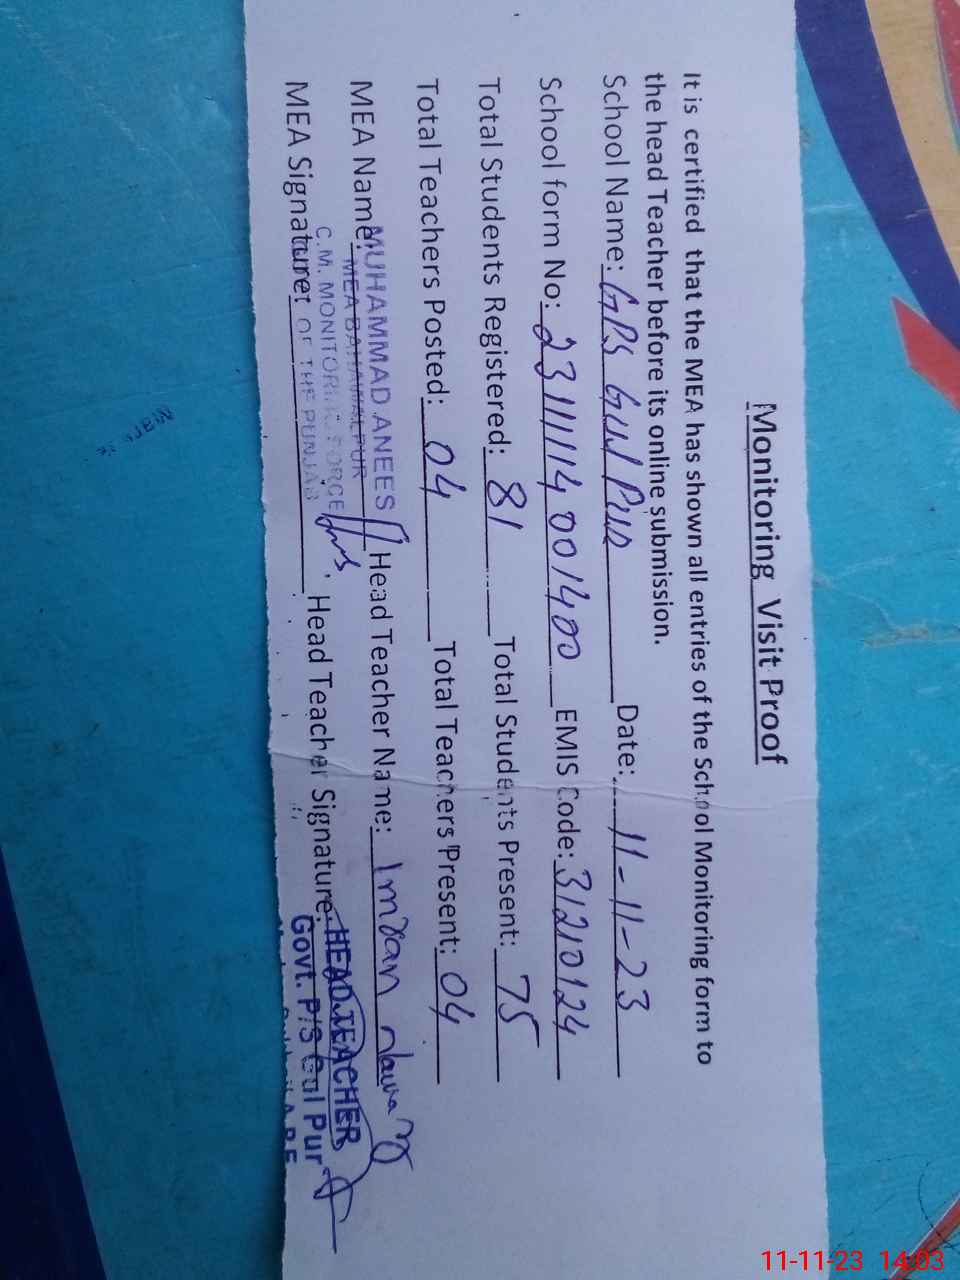 Monitoring Visit Proof
It is certified that the MEA has shown all entries of the School Monitoring form to
the head Teacher before its online submission.
School Name: GPS Gul Pur Date: 11-11-23
School form No: EMIS Code: 31210124
Total Students Registered: 81 Total Students Present: 75
Total Teachers Posted: 04 Total Teachers Present: 04
MEA Name: MUHAMMAD ANEES Head Teacher Name: Imran
MEA BAHAWALPUR
C.M. MONITORING FORCE
MEA Signature: OF THE PUNJAB Head Teacher Signature: HEAD TEACHER
Govt. P/S Gul Pur
11-11-23 14:03